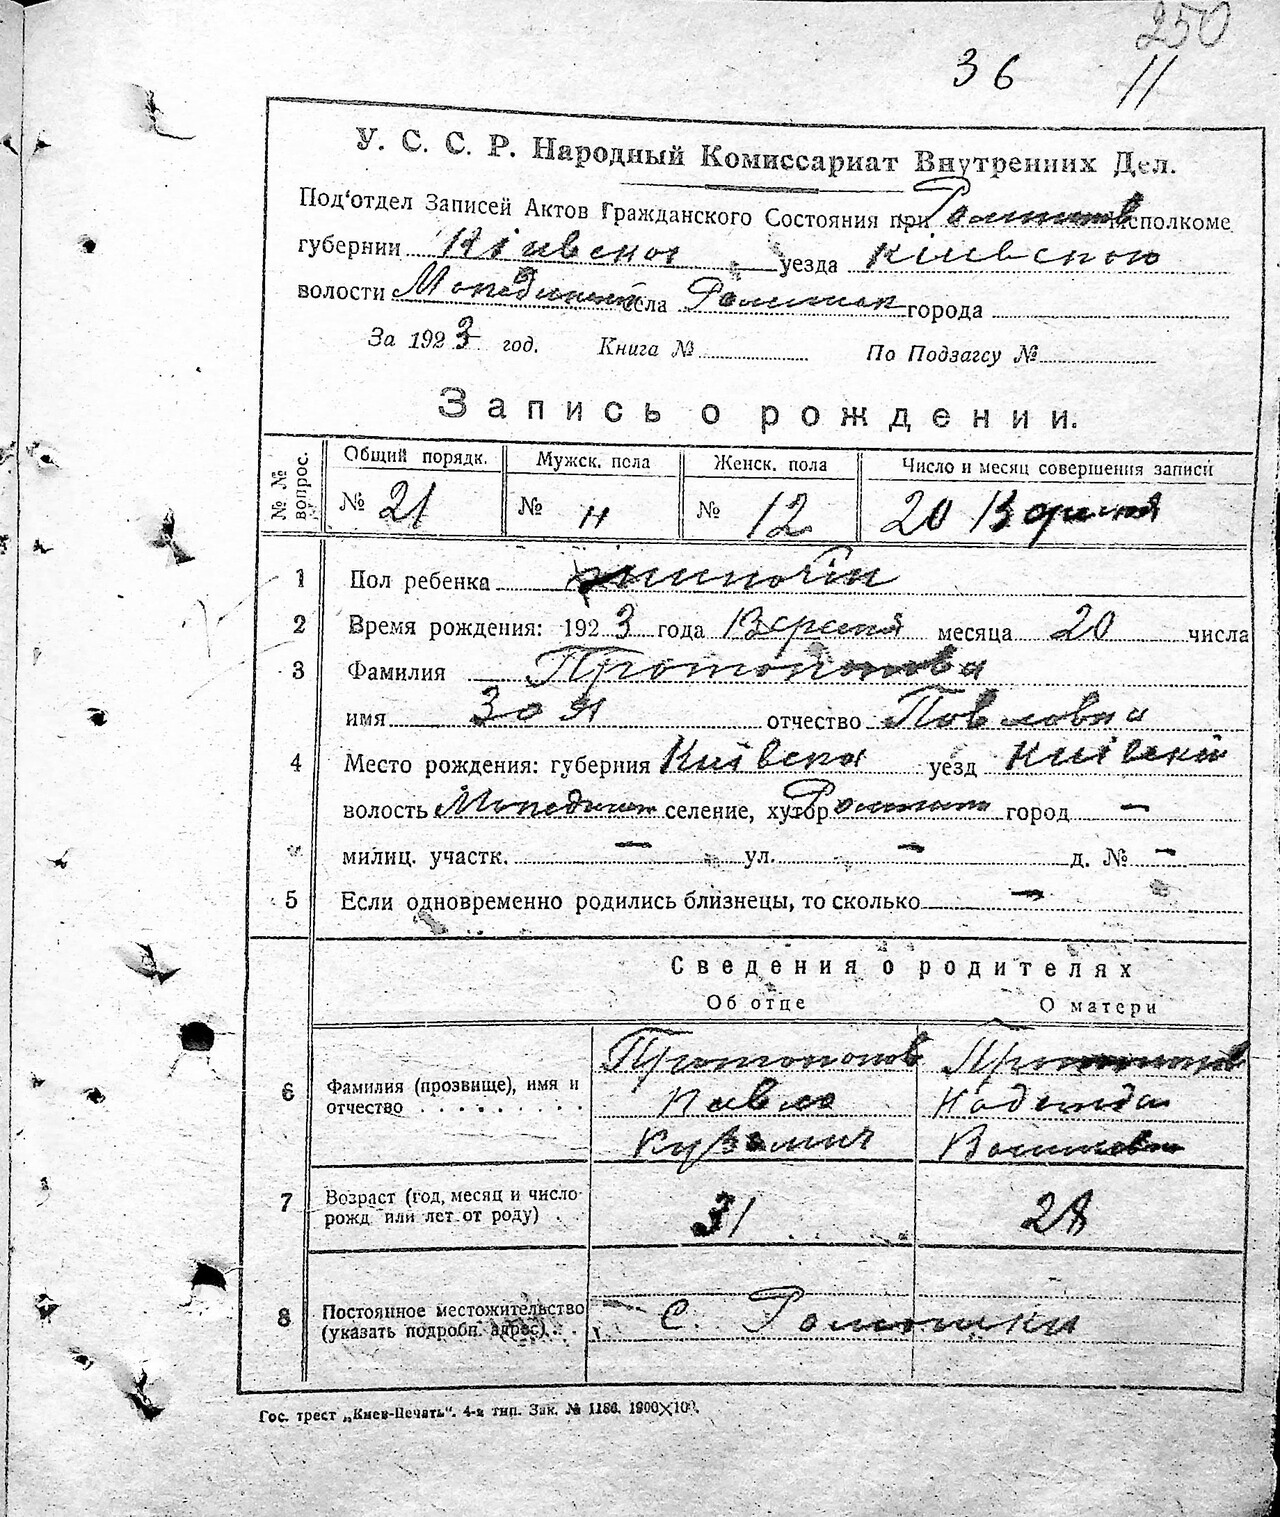 250
36 11
У. С. С. Р. Народный Комиссариат Внутренних Дел.
Под'отдел Записей Актов Гражданского Состояния при исполкоме
губернии Київской уезда Київского
волости села города
За 1923 год. Книга № По Подзагсу №
Запись о рождении.
№№ вопрос. Общий порядк. Мужск. пола Женск. пола Число и месяц совершения записи
№ 21 № № 12 20 Вересня
1 Пол ребенка
2 Время рождения: 1923 года Вересня месяца 20 числа
3 Фамилия Протопопова
имя Зоя отчество Повловна
4 Место рождения: губерния Київска уезд Київский
волость селение, хутор город —
милиц. участк. — ул. — д. № —
5 Если одновременно родились близнецы, то сколько —
Сведения о родителях
Об отце О матери
6 Фамилия (прозвище), имя и отчество . . . . . . . . .
Протопопов Протопопов
Павло Надежда
Кузьмич
7 Возраст (год, месяц и число рожд или лет от роду) . 31 28
8 Постоянное местожительство (указать подробн. адрес). . с. Ромашки
Гос. трест „Киев-Печать". 4-я тип. Зак. № 1186. 1900×100.